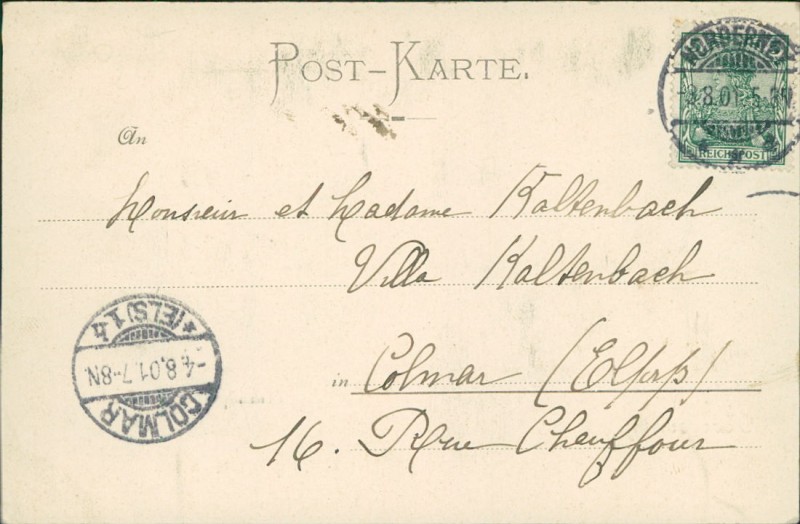 POST-KARTE.
NORDERNEY
-3.8.01. 5-
REICHSPOST
An
Monsieur et Madame Kaltenbach
Villa Kaltenbach
in Colmar (Elsass)
16. Rue Chauffour
COLMAR
-4.8.01.7-8N
*(ELS)1.h